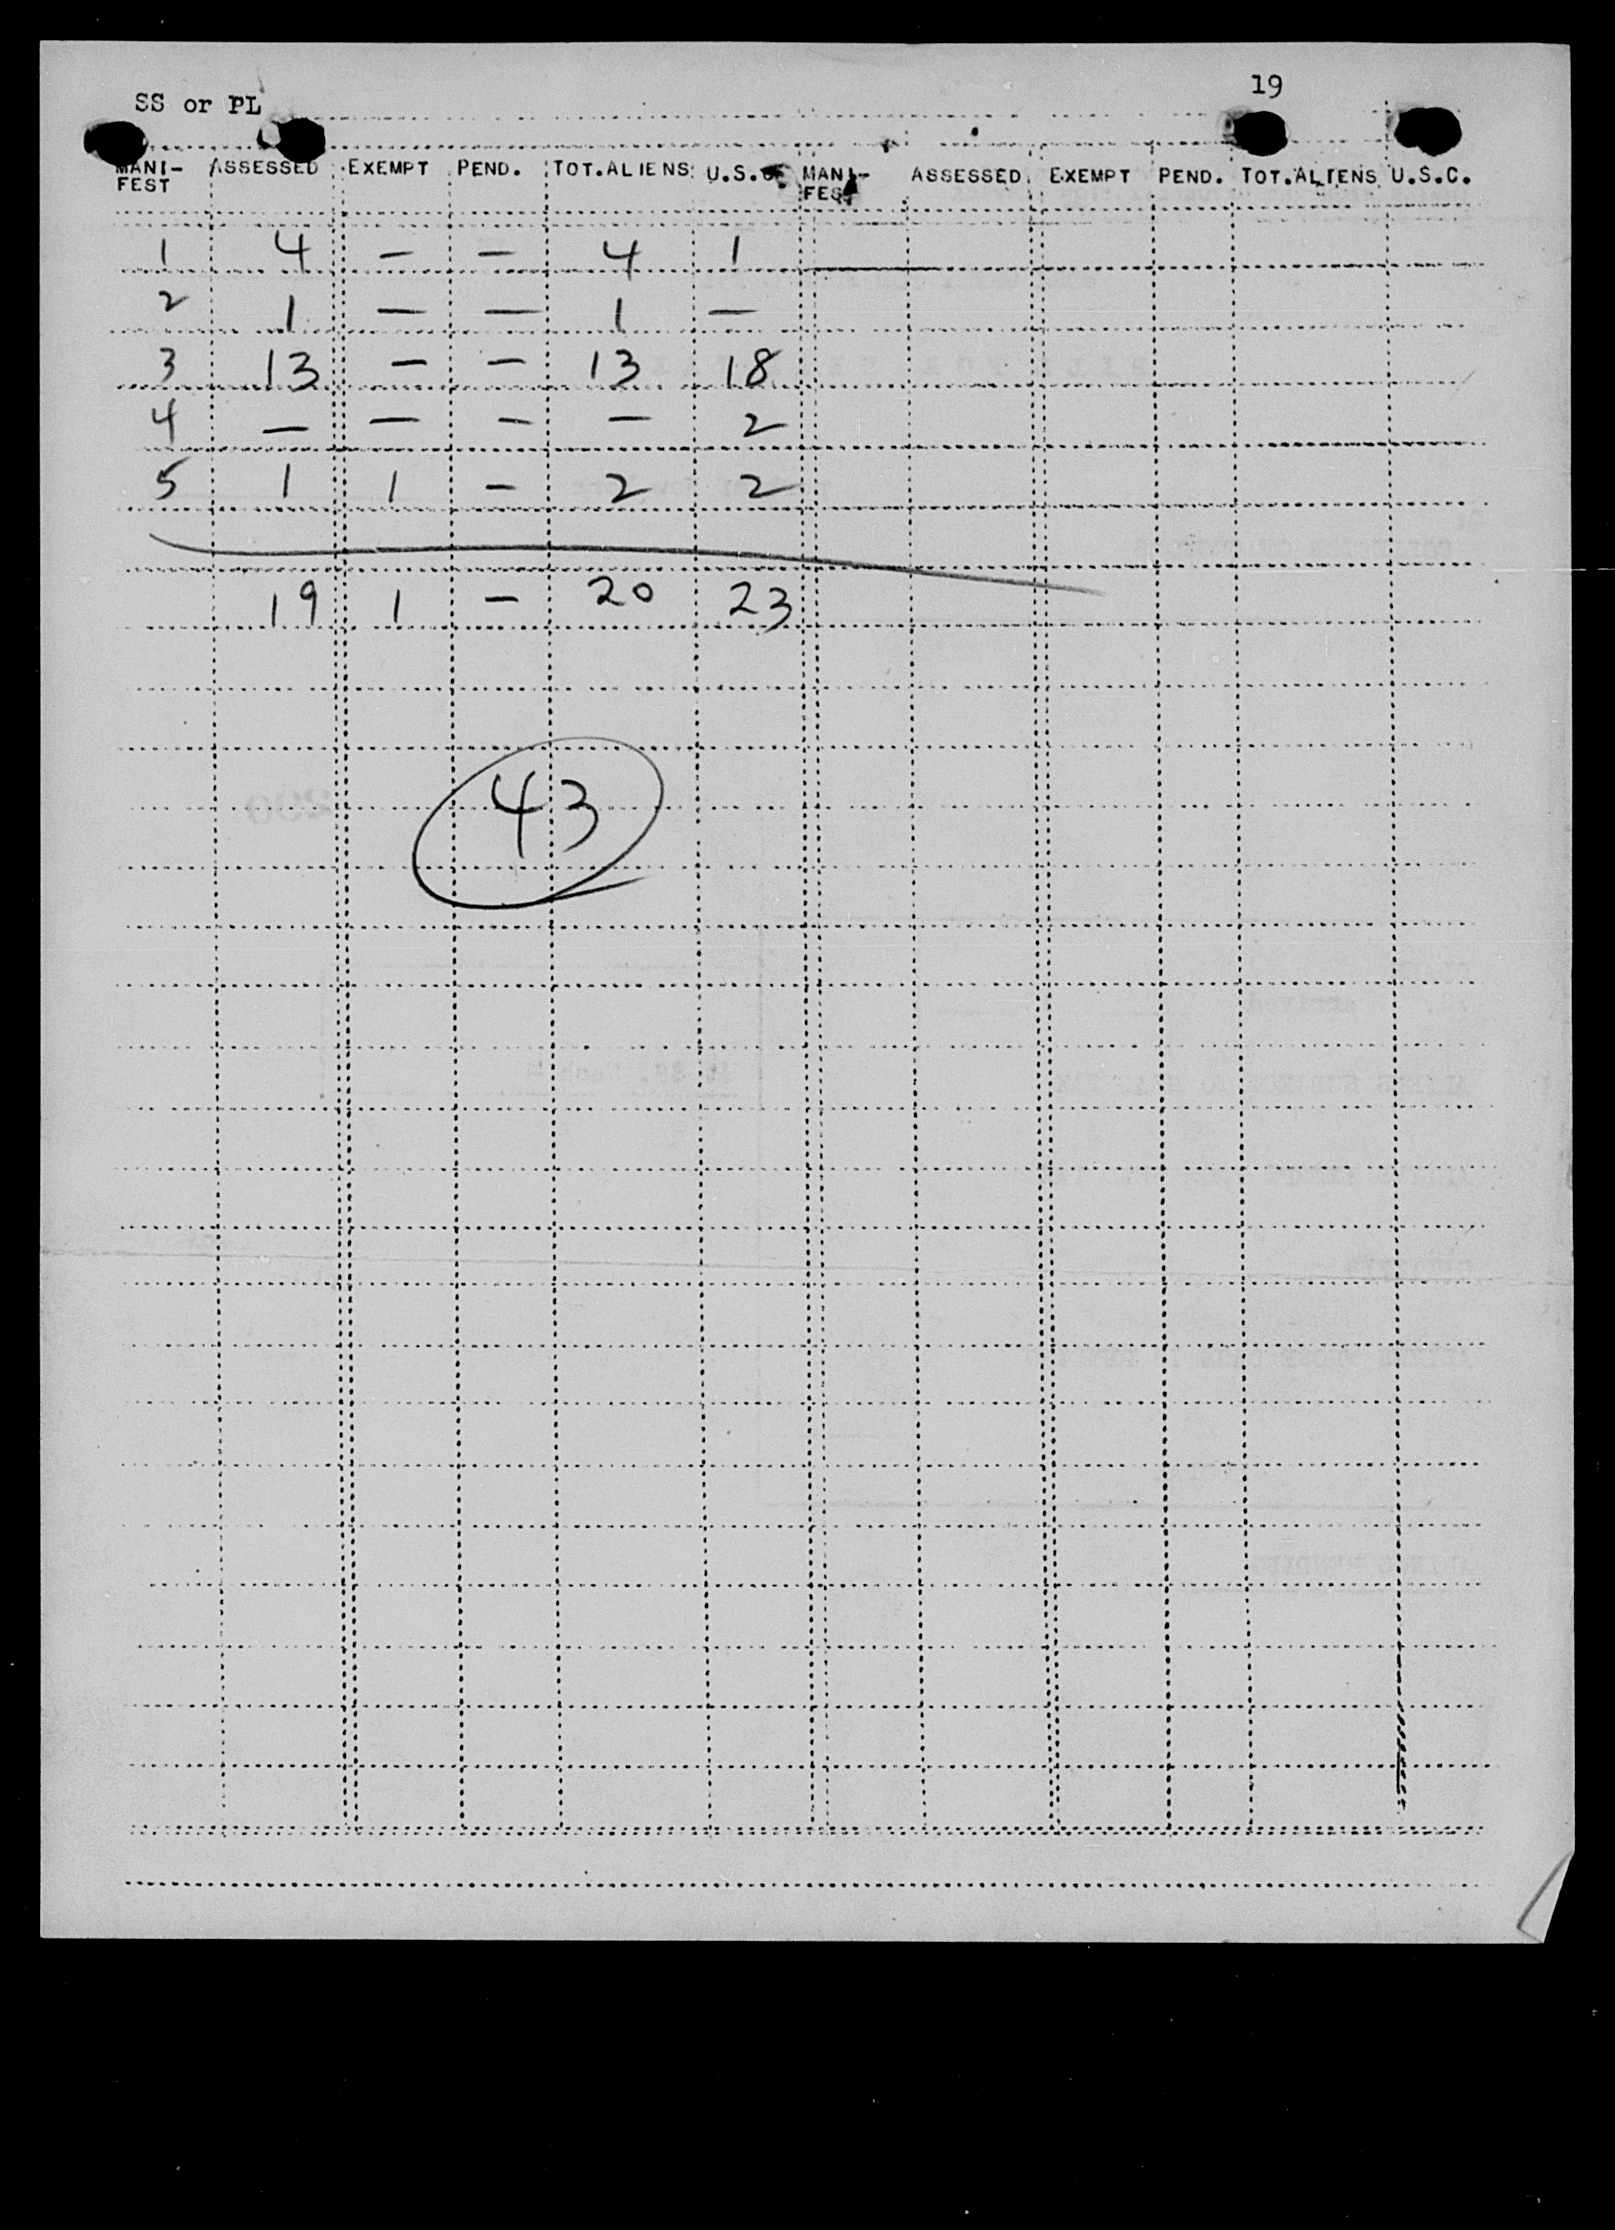 SS or PL 19
MANI-FEST ASSESSED EXEMPT PEND. TOT.ALIENS U.S.C. MANI-FEST ASSESSED EXEMPT PEND. TOT.ALIENS U.S.C.
1 4 — — 4 1
2 1 — — 1 —
3 13 — — 13 18
4 — — — — 2
5 1 1 — 2 2
19 1 — 20 23
43